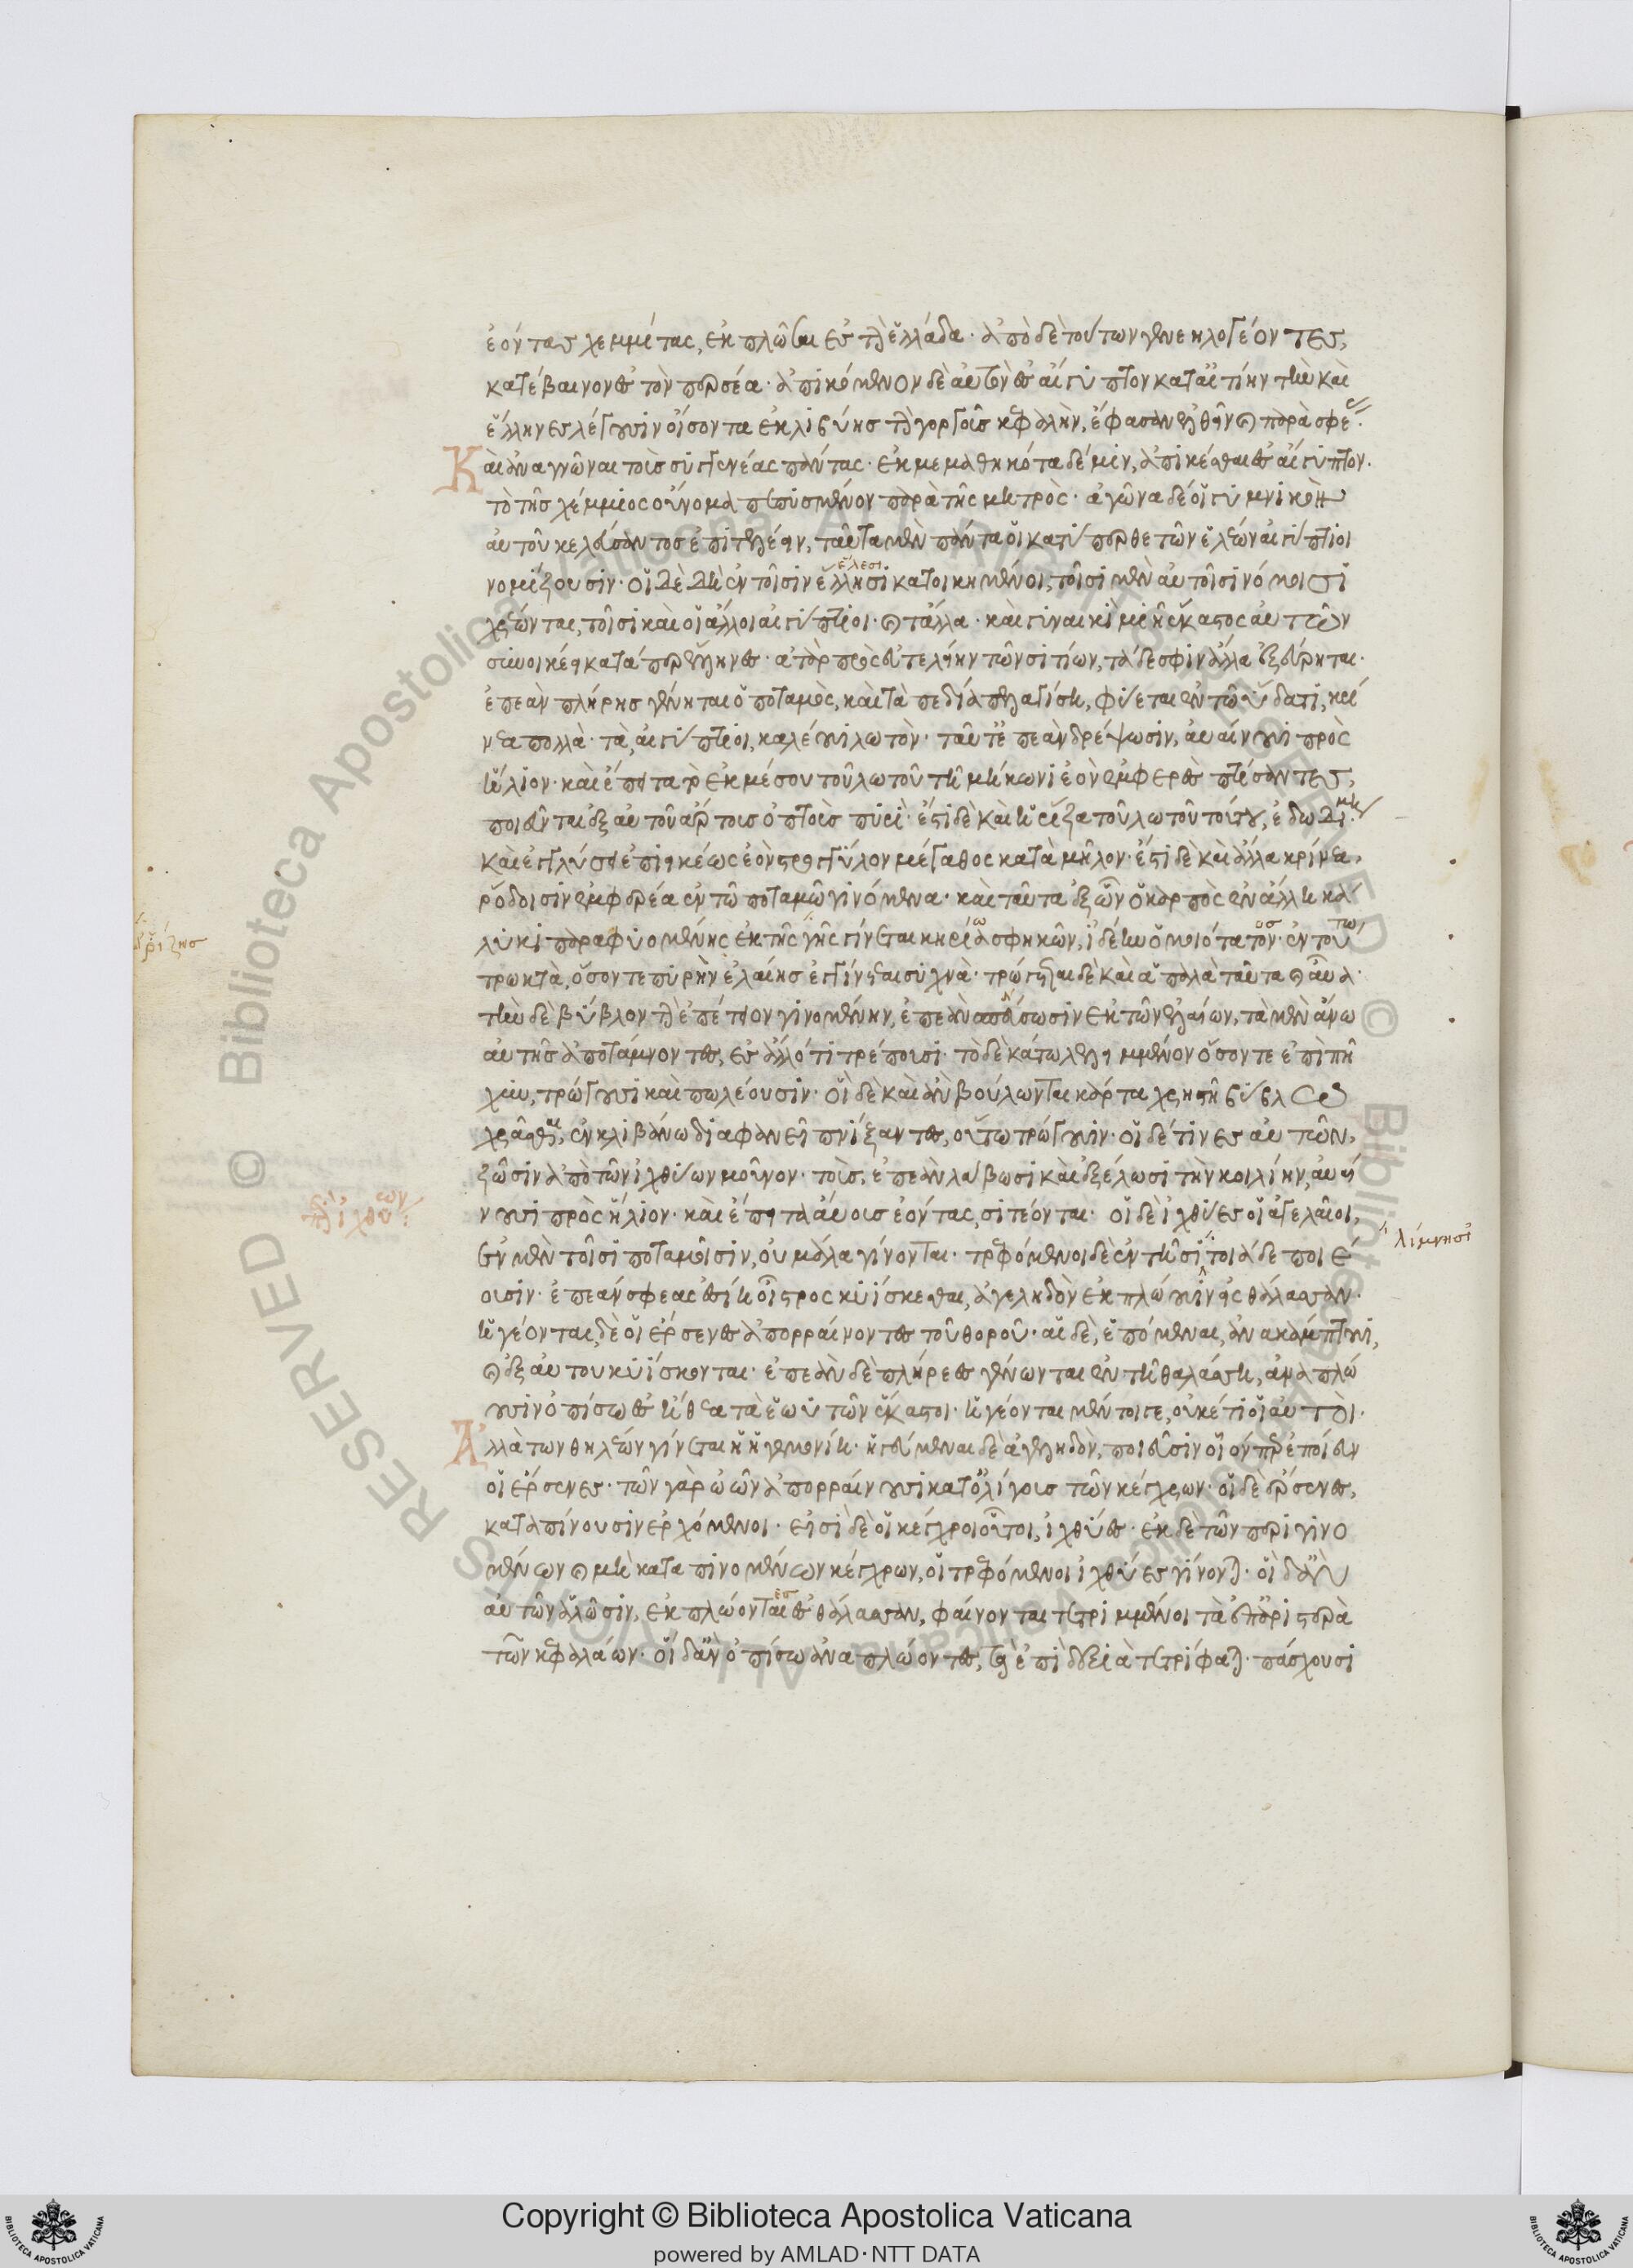 ἐόντας χεμμίτας, ἐκπλῶσαι ἐς τὴν ἑλλάδα· ἀπὸ δὲ τούτων γενεηλογέοντες,
κατέβαινον ἐς τὸν περσέα· ἀπικόμενον δὲ αὐτὸν ἐς αἴγυπτον κατ' αἰτίην τὴν καὶ
ἕλληνες λέγουσιν οἴσοντα ἐκ λιβύης τὴν γοργοῦς κεφαλὴν, ἔφασαν ἐλθεῖν καὶ παρὰ σφέας·
Καὶ ἀναγνῶναι τοὺς συγγενέας πάντας· ἐκμεμαθηκότα δέ μιν, ἀπικέσθαι ἐς αἴγυπτον·
τὸ τῆς χέμμιος οὔνομα πεπυσμένον παρὰ τῆς μητρὸς· ἀγῶνα δέ οἱ γυμνικὸν
αὐτοῦ κελεύσαντος ἐπιτελέειν, ταῦτα μὲν πάντα οἱ κατύπερθε τῶν ἑλέων αἰγύπτιοι
νομίζουσιν· οἱ δὲ δὴ ἐν τοῖσιν ἕλλησι κατοικημένοι, τοῖσι μὲν αὐτοῖσι νόμοισι
ἕλεσι
χρέωνται, τοῖσι καὶ οἱ ἄλλοι αἰγύπτιοι· καὶ τἆλλα· καὶ γυναικὶ μιῇ ἕκαστος αὐτῶν
συνοικέει κατάπερ ἕλληνες· ἀτὰρ πρὸς εὐτελείην τῶν σιτίων, τάδε σφιν ἄλλα ἐξεύρηται·
ἐπεὰν πλήρης γένηται ὁ ποταμὸς, καὶ τὰ πεδία πελαγίσῃ, φύεται ἐν τῷ ὕδατι, κρί
νεα πολλὰ· τὰ αἰγύπτιοι, καλέουσι λωτὸν· ταῦτ' ἐπεὰν δρέψωσιν, αὐαίνουσι πρὸς
ἥλιον· καὶ ἔπειτα τὸ ἐκ μέσου τοῦ λωτοῦ τῇ μήκωνι ἐὸν ἐμφερὲς πτίσαντες,
ποιεῦνται ἐξ αὐτοῦ ἄρτους ὀπτοὺς πυρὶ· ἔστι δὲ καὶ ἡ ῥίζα τοῦ λωτοῦ τούτου, ἐδωδίμη
καὶ ἐγλύσσει ἐπιεικέως ἐὸν στρογγύλον μέγαθος κατὰ μῆλον· ἔστι δὲ καὶ ἄλλα κρίνεα,
ῥόδοισιν ἐμφερέα ἐν τῷ ποταμῷ γινόμενα· καὶ ταῦτα ἐξ ὧν ὁ καρπὸς ἐν ἄλλῃ κά
λυκι παραφυομένης ἐκ τῆς γῆς γίνεται κηρίω σφηκῶν, ἰδέην ὁμοιότατον· ἐν τούτω
ῥίζης
τρωκτὰ, ὅσον τε πυρὴν ἐλαίης ἐγγίνεται συχνὰ· τρώγεται δὲ καὶ ἁπαλὰ ταῦτα καὶ αὖα·
τὴν δὲ βύβλον τὴν ἐπέτειον γινομένην, ἐπεὰν ἀπάσωσιν ἐκ τῶν ἐλαίων, τὰ μὲν ἄνω
αὐτῆς ἀποτάμνοντες, ἐς ἄλλό τι τρέπουσι· τὸ δὲ κάτω λελειμμένον ὅσον τε ἐπὶ πῆ
χυν, τρώγουσι καὶ πωλέουσιν· οἳ δὲ καὶ ἂν βούλωνται κάρτα χρηστῇ βύβλῳ
χρᾶσθαι, ἐν κλιβάνω διαφανεῖ πνίξαντες, οὕτω τρώγουσιν· οἱ δέ τινες αὐτῶν,
ζῶσιν ἀπὸ τῶν ἰχθύων μοῦνον· τοὺς, ἐπεὰν λάβωσι καὶ ἐξέλωσι τὴν κοιλίην, αὐαί
νουσι πρὸς ἥλιον· καὶ ἔπειτα αὔους ἐόντας, σιτέονται· οἱ δὲ ἰχθύες οἱ ἀγελαῖοι,
περὶ ἰχθύων
ἐν μὲν τοῖσι ποταμοῖσιν, οὐ μάλα γίνονται· τρεφόμενοι δὲ ἐν τῇσι, τοιάδε ποιέ
λίμνησι
ουσιν· ἐπεάν σφεας ἐσίῃ οἶστρος κυΐσκεσθαι, ἀγεληδὸν ἐκπλώουσιν ἐς θάλασσαν·
ἡγέονται, δὲ οἱ ἔρσενες ἀπορραίνοντες τοῦ θοροῦ· αἱ δὲ, ἑπόμεναι, ἀνακάμπτουσι,
καὶ ἐξ αὐτοῦ κυΐσκονται· ἐπεὰν δὲ πλήρεες γένωνται ἐν τῇ θαλάσσῃ, ἀναπλώ
ουσιν ὀπίσω ἐς ἤθεα τὰ ἑωυτῶν ἕκαστοι· ἡγέονται μέντοι γε, οὐκέτι οἱ αὐτοὶ·
Ἀλλὰ τῶν θηλέων γίνεται ἡ ἡγεμονίη· ἡγεύμεναι δὲ ἀγεληδὸν, ποιεῦσιν οἷόν περ ἐποίευν
οἱ ἔρσενες· τῶν γὰρ ὠῶν ἀπορραίνουσι κατ' ὀλίγους τῶν κέγχρων· οἱ δὲ ἔρσενες,
καταπίνουσιν ἑρχόμενοι· εἰσὶ δὲ οἱ κέγχροι οὗτοι, ἰχθύες· ἐκ δὲ τῶν περιγινο
μένων καὶ μὴ καταπινομένων κέγχρων, οἱ τρεφόμενοι ἰχθύες γίνονται· οἳ δ' ἂν
αὐτῶν ἁλῶσιν, ἐκπλώοντες ἐς θάλασσαν, φαίνονται τετριμμένοι τὰ ἐπ' ἀριστερὰ
τῶν κεφαλέων· οἳ δ' ἂν ὀπίσω ἀναπλώοντες, τὰ ἐπὶ δεξιὰ τετρίφαται· πάσχουσι
Copyright © Biblioteca Apostolica Vaticana
powered by AMLAD·NTT DATA